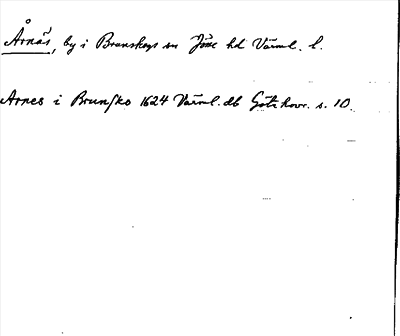 Årnäs, by i Brunskogs sn Jösse hd Värml. l.
Arnes i Brunsko 1624 Värml. db Göta hovr. s. 10.